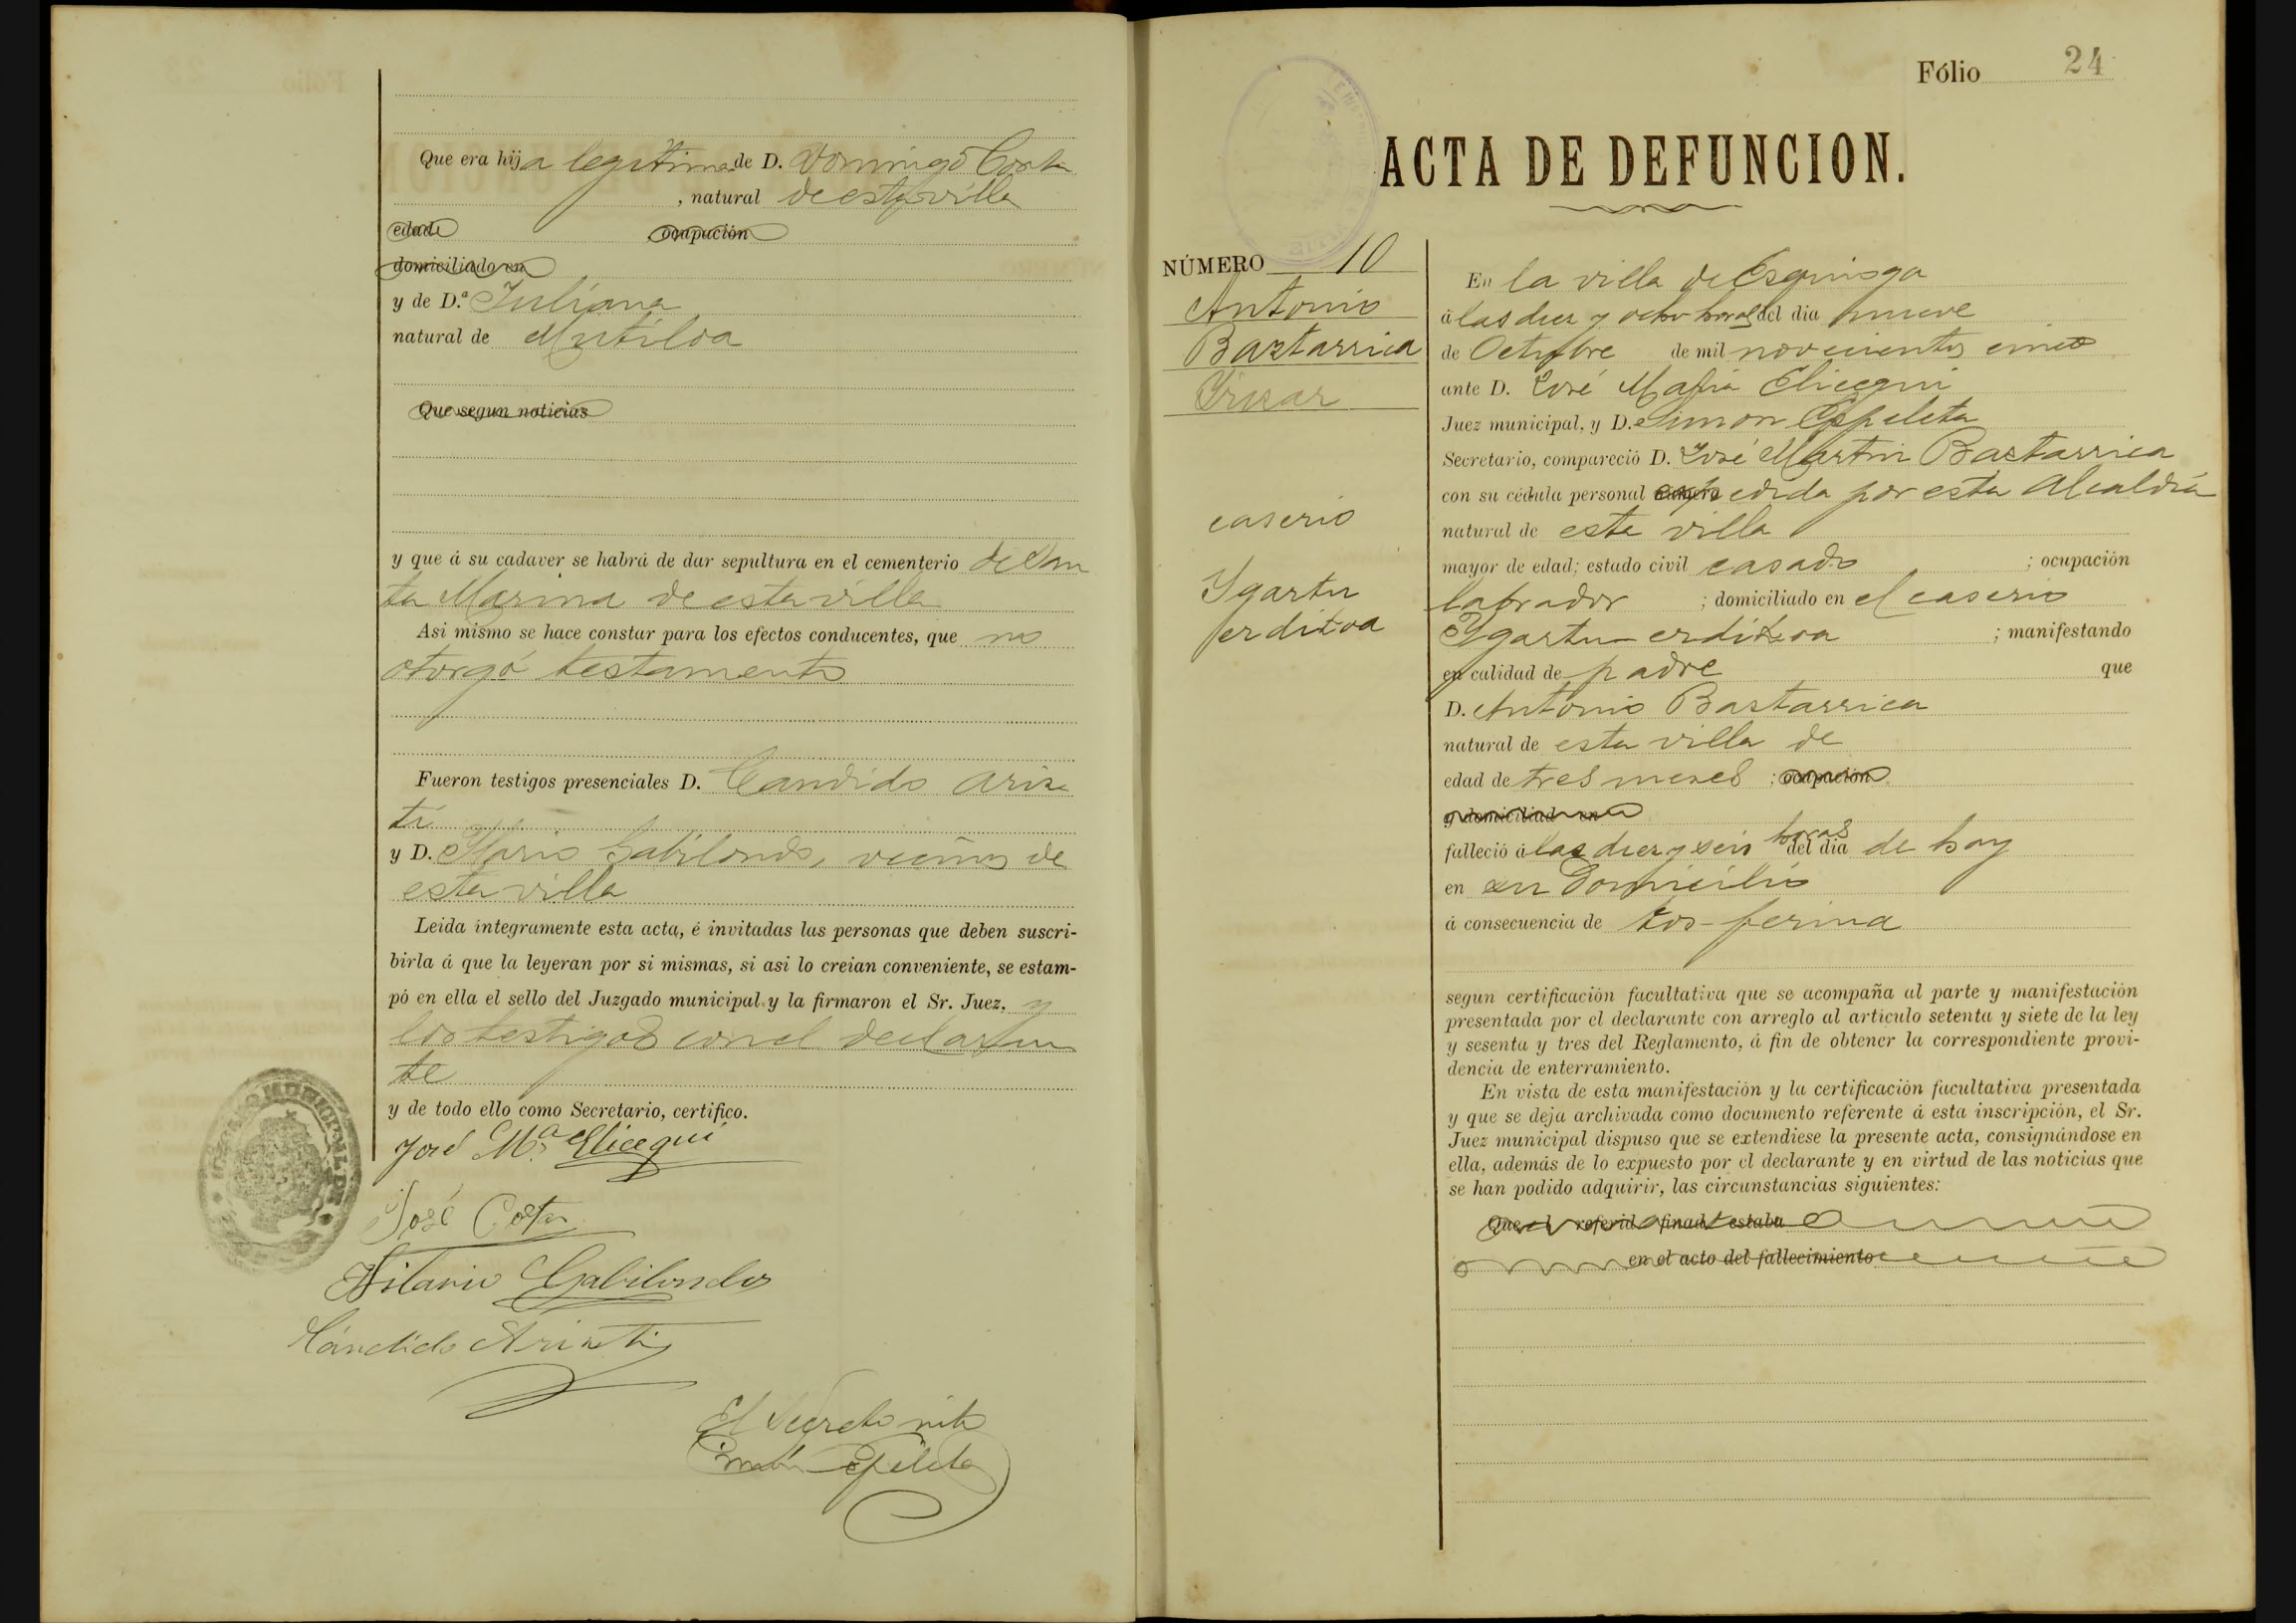 Que era hija legitima de D. Domingo Costa
, natural de esta villa
edad ocupación
domiciliado en
y de D.ª Juliana
natural de Mutiloa
Que segun noticias
y que á su cadaver se habrá de dar sepultura en el cementerio de San
ta Marina de esta villa
Asi mismo se hace constar para los efectos conducentes, que no
otorgó testamento
Fueron testigos presenciales D. Candido Ariz
ti
y D. Ilario Gabilondo, vecinos de
esta villa
Leida íntegramente esta acta, é invitadas las personas que deben suscri-
birla á que la leyeran por si mismas, si asi lo creian conveniente, se estam-
pó en ella el sello del Juzgado municipal y la firmaron el Sr. Juez, y
los testigos con el declaran
te
y de todo ello como Secretario, certifico.
José M.ª Elicegui
José Costa
Hilario Gabilondo
Cándido Arizti
El Secretario
Simón Espeleta
JUZGADO MUNICIPAL DE
Fólio 24
ACTA DE DEFUNCION.
NÚMERO 10
Antonio
Baztarrica
Irizar
caserio
Ygartu
erditoa
En la villa de Ezquioga
á las diez y ocho horas del dia nueve
de Octubre de mil novecientos cinco
ante D. José Maria Elicegui
Juez municipal, y D. Simon Espeleta
Secretario, compareció D. José Martin Baztarrica
con su cédula personal número expedida por esta Alcaldia
natural de esta villa
mayor de edad; estado civil casado ; ocupación
labrador ; domiciliado en el caserio
Ygartu-erditoa ; manifestando
en calidad de padre que
D. Antonio Baztarrica
natural de esta villa de
edad de tres meses ; ocupación
y domiciliado en
falleció á las diez y seis horas del dia de hoy
en su domicilio
á consecuencia de tos-ferina
segun certificación facultativa que se acompaña al parte y manifestación
presentada por el declarante con arreglo al artículo setenta y siete de la ley
y sesenta y tres del Reglamento, á fin de obtener la correspondiente provi-
dencia de enterramiento.
En vista de esta manifestación y la certificación facultativa presentada
y que se deja archivada como documento referente á esta inscripción, el Sr.
Juez municipal dispuso que se extendiese la presente acta, consignándose en
ella, además de lo expuesto por el declarante y en virtud de las noticias que
se han podido adquirir, las circunstancias siguientes:
Que el referido finado estaba
en el acto del fallecimiento